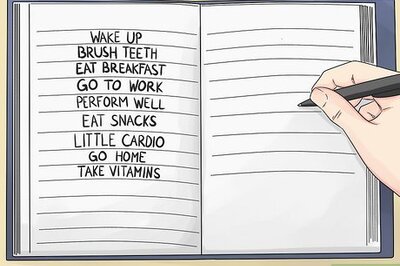 WAKE UP
BRUSH TEETH
EAT BREAKFAST
GO TO WORK
PERFORM WELL
EAT SNACKS
LITTLE CARDIO
GO HOME
TAKE VITAMINS